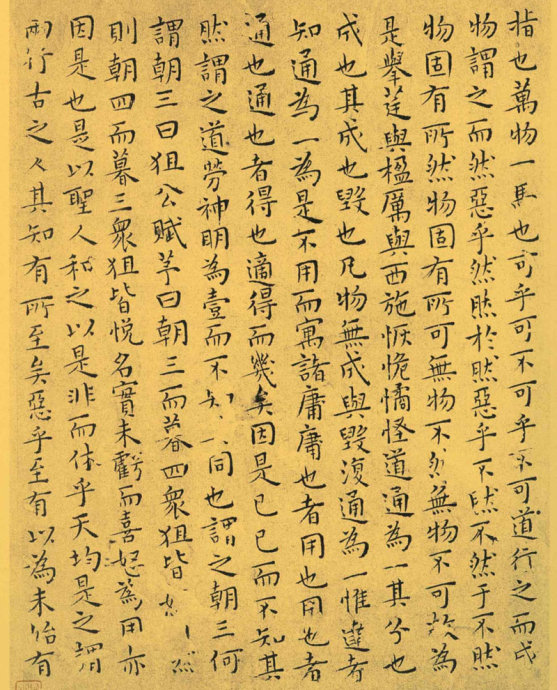 指也萬物一馬也可乎可不可乎不可道行之而成
物謂之而然惡乎然然於然惡乎不然不然于不然
物固有所然物固有所可無物不然無物不可故為
是舉莛與楹厲與西施恢恑憰怪道通為一其分也
成也其成也毀也凡物無成與毀復通為一惟達者
知通為一為是不用而寓諸庸庸也者用也用也者
通也通也者得也適得而幾矣因是已已而不知其
然謂之道勞神明為壹而不知同也謂之朝三何
謂朝三曰狙公賦芧曰朝三而暮四眾狙皆怒
則朝四而暮三眾狙皆悅名實未虧而喜怒為用亦
因是也是以聖人和之以是非而休乎天均是之謂
兩行古之人其知有所至矣惡乎至有以為未始有